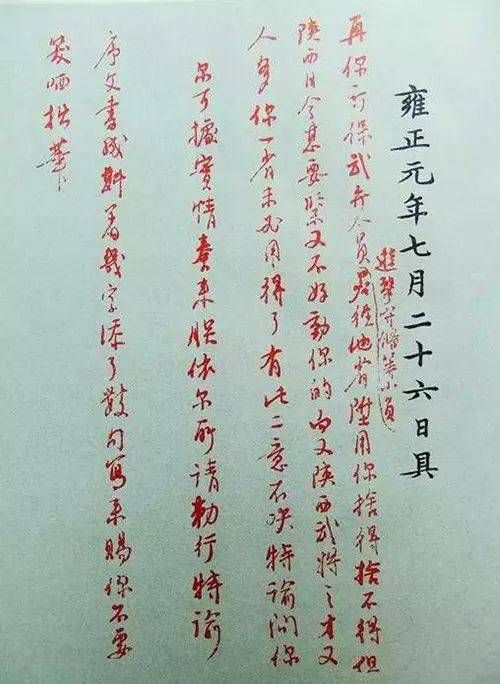 雍正元年七月二十六日具
再你所保武弁人員經他省陞用你捨得捨不得但
遊擊守備等小員
陝西目今甚要緊又不好動你的向又陝西武將之才又
人多你一省未必用得了有此二意不決特諭問你
尔可據實情奏來朕依尔所請勅行特諭
序文書成斟着幾字添了數句寫來賜你不要
笑哂拙筆